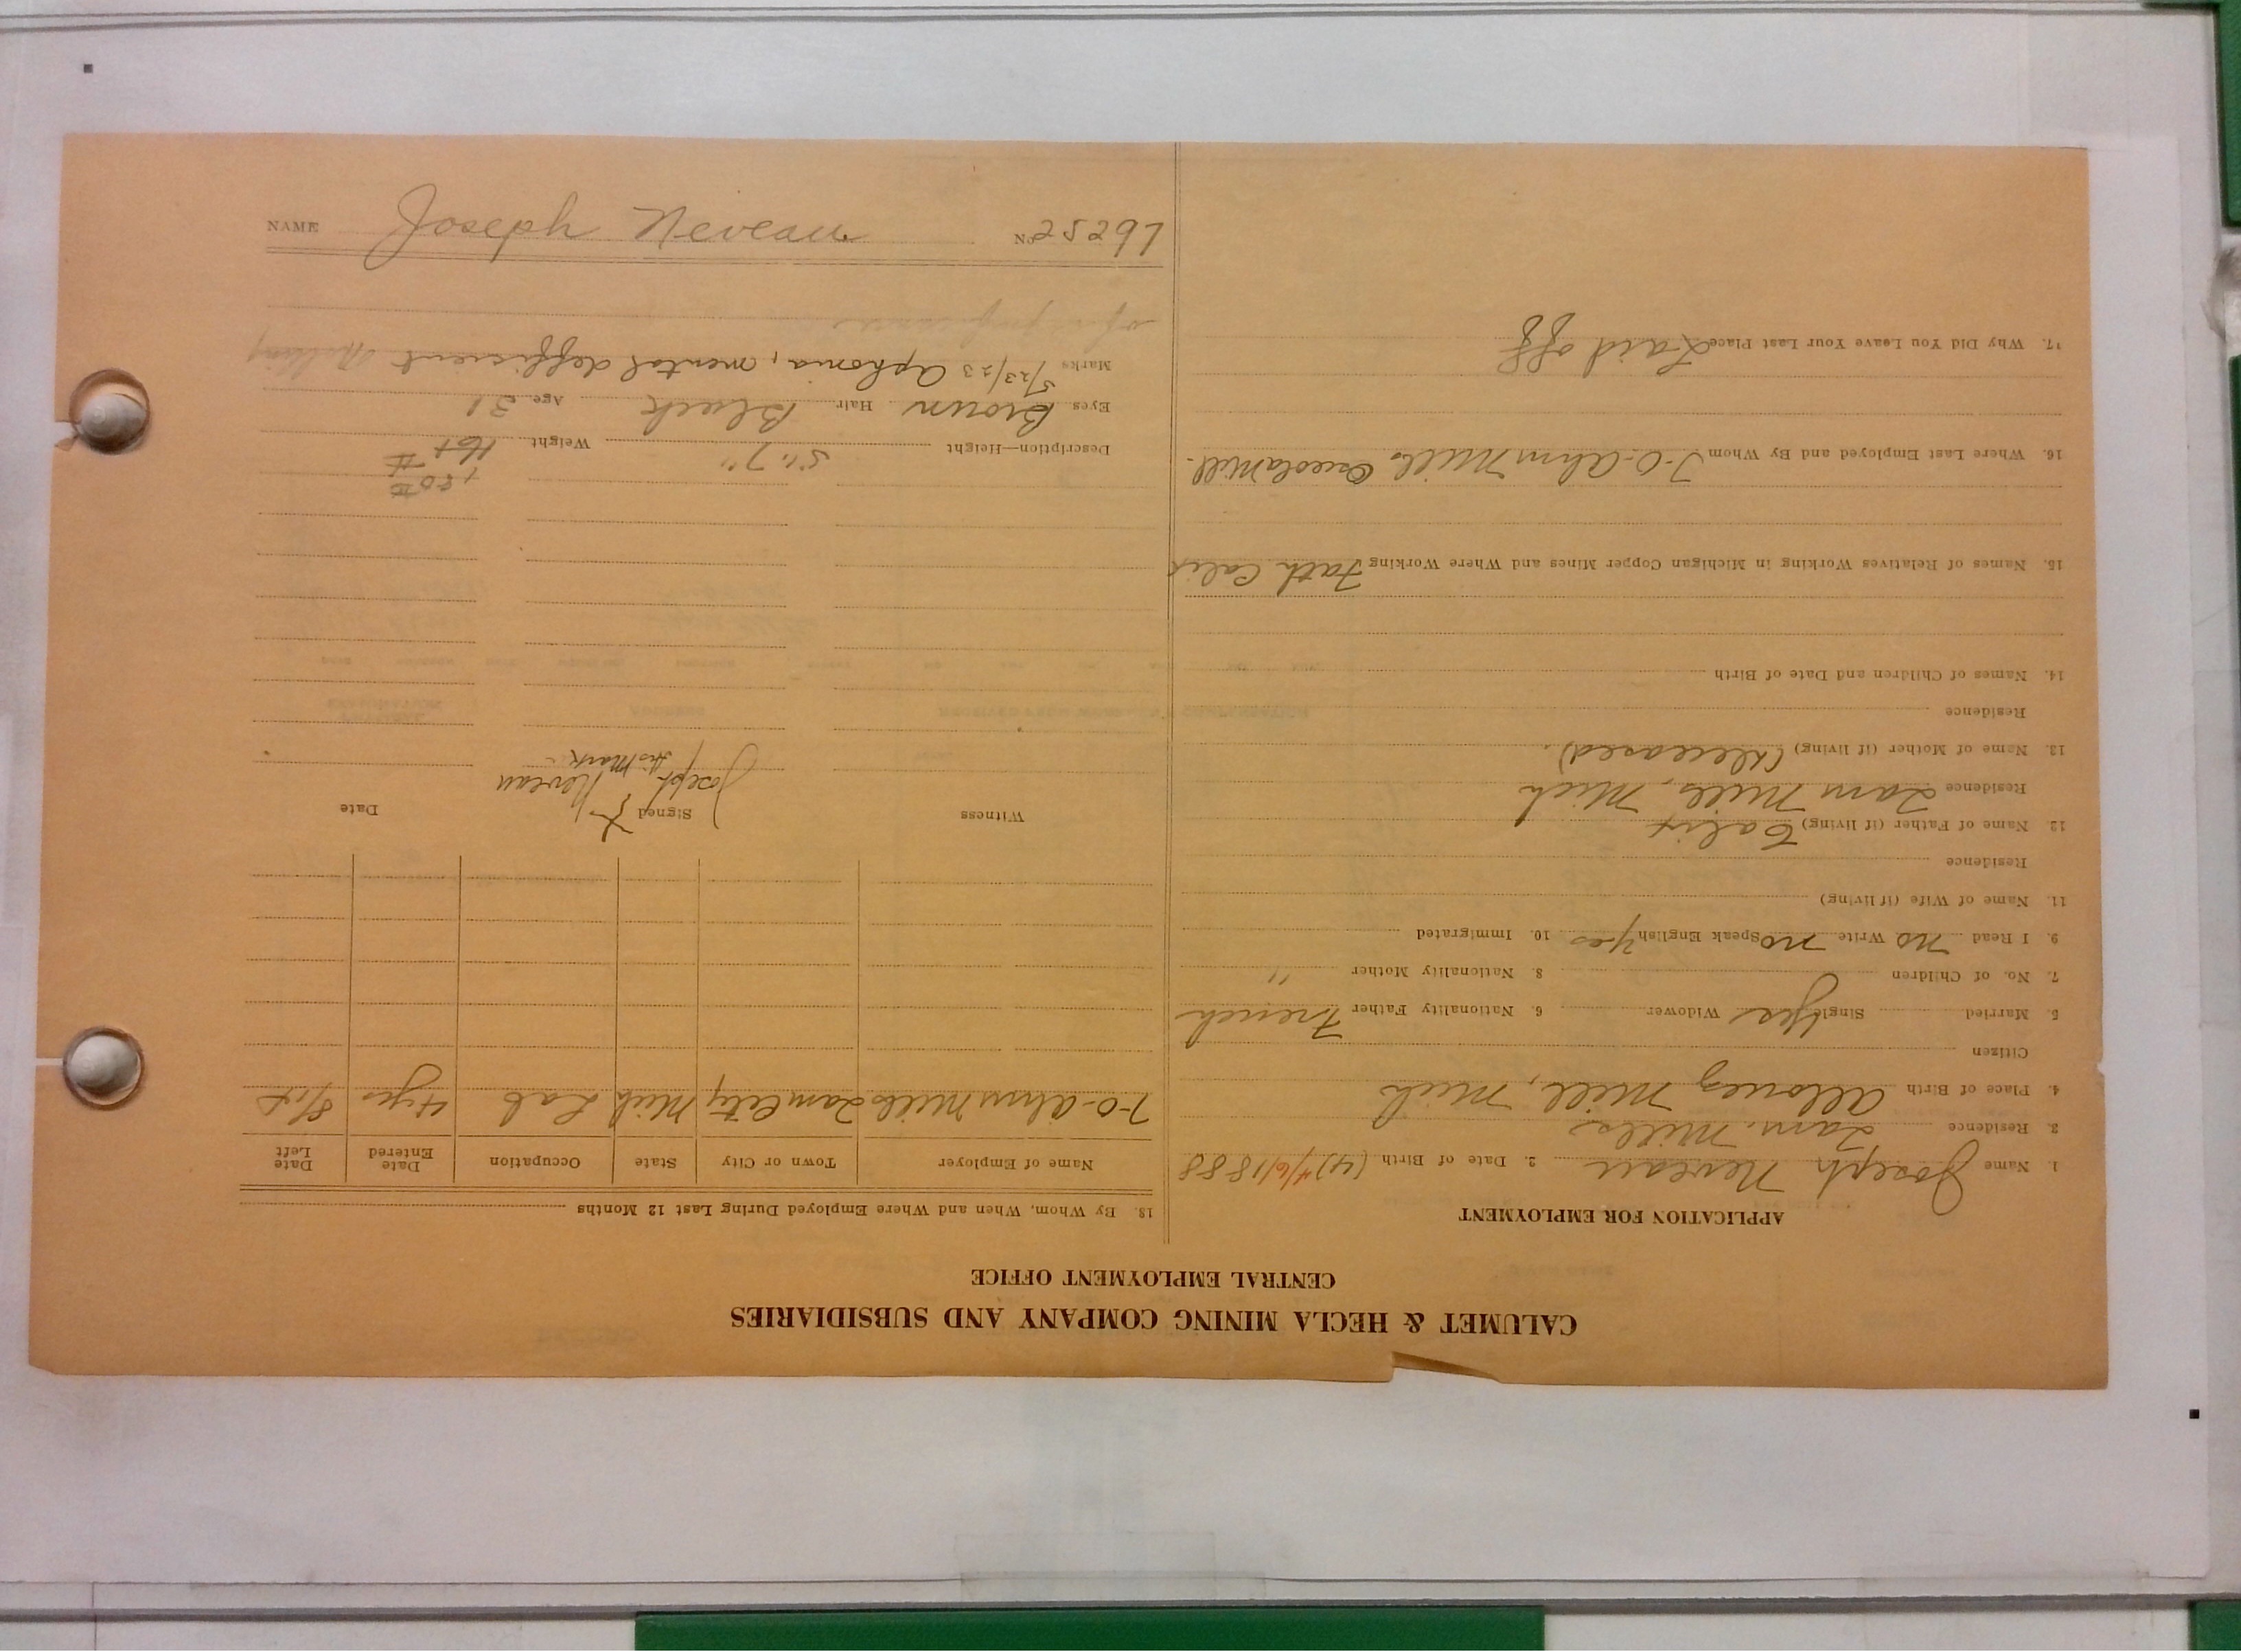 CALUMET & HECLA MINING COMPANY AND SUBSIDIARIES
CENTRAL EMPLOYMENT OFFICE
APPLICATION FOR EMPLOYMENT
1. Name Joseph Neveau 2. Date of Birth (4) 4/6/1888
3. Residence Tam. Mills
4. Place of Birth Allouez Mill, Mich
Citizen
5. Married Single Yes Widower 6. Nationality Father French
7. No. of Children 8. Nationality Mother "
9. I Read no Write no Speak English yes 10. Immigrated
11. Name of Wife (if living)
Residence
12. Name of Father (if living) Calix
Residence Tam Mills, Mich
13. Name of Mother (if living) (Deceased).
Residence
14. Names of Children and Date of Birth
15. Names of Relatives Working in Michigan Copper Mines and Where Working Fath Calix
16. Where Last Employed and By Whom T-O-Ahm Mills Osceola Mill.
17. Why Did You Leave Your Last Place Laid off
18. By Whom, When and Where Employed During Last 12 Months
Name of Employer Town or City State Occupation Date Entered Date Left
T-O-Ahm Mills Tam City Mich Lab 4 yrs
Witness Signed Date
Joseph X Neveau
his Mark
180#
Description—Height 5'. 7" Weight 164 #
Eyes Brown Hair Black Age 31
Marks 5/23/23 Aphonia, mental deffisient
of
NAME Joseph Neveau No. 25297